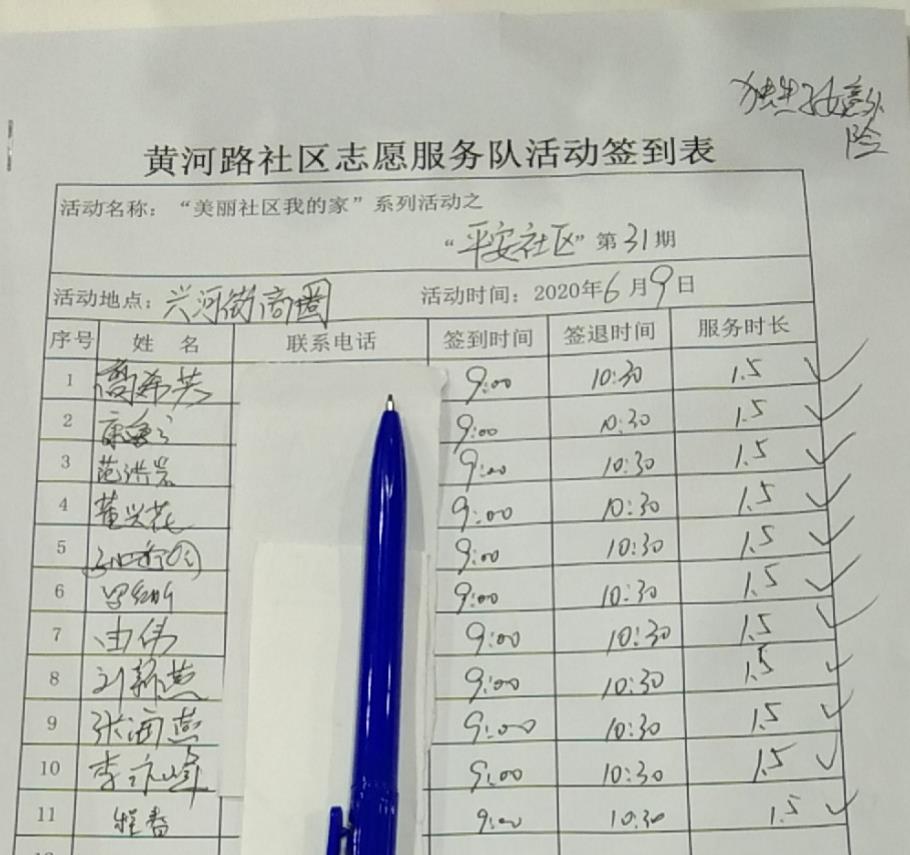 独生子女意外
险
黄河路社区志愿服务队活动签到表
活动名称：“美丽社区我的家”系列活动之
“平安社区”第31期
活动地点：兴河街商圈 活动时间：2020年6月9日
序号 姓 名 联系电话 签到时间 签退时间 服务时长
1 9:00 10:30 1.5 ✓
2 康 9:00 10:30 1.5 ✓
3 范洪岩 9:00 10:30 1.5 ✓
4 董兴花 9:00 10:30 1.5 ✓
5 9:00 10:30 1.5 ✓
6 9:00 10:30 1.5 ✓
7 由伟 9:00 10:30 1.5 ✓
8 刘新燕 9:00 10:30 1.5 ✓
9 张海燕 9:00 10:30 1.5 ✓
10 李峰 9:00 10:30 1.5 ✓
11 程香 9:00 10:30 1.5 ✓